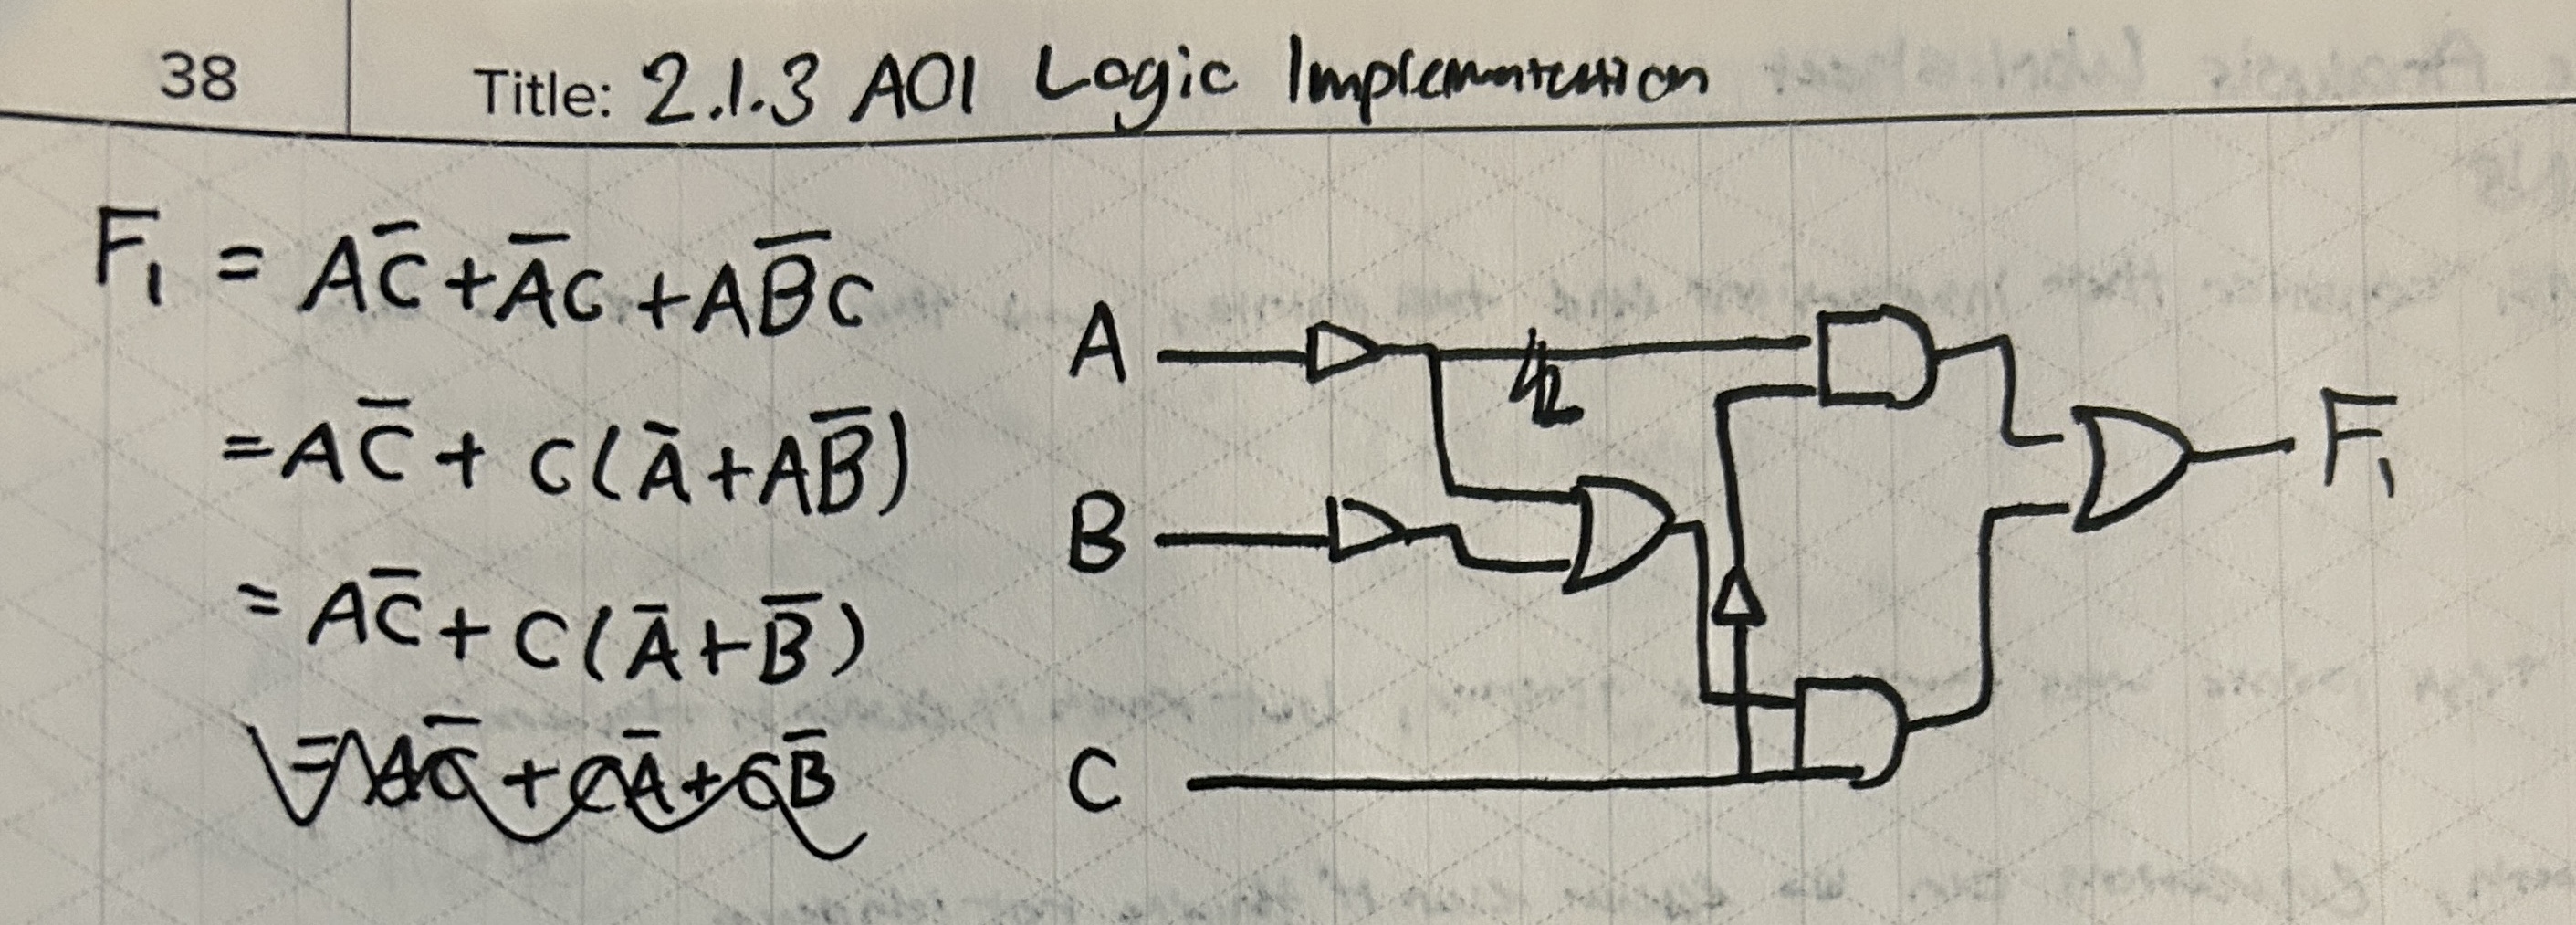 38
Title: 2.1.3 AOI Logic Implementation
F₁ = AC̅ + A̅C + AB̅C
= AC̅ + C(A̅ + AB̅)
= AC̅ + C(A̅ + B̅)
= AC̅ + CA̅ + CB̅
A
B
C
F₁